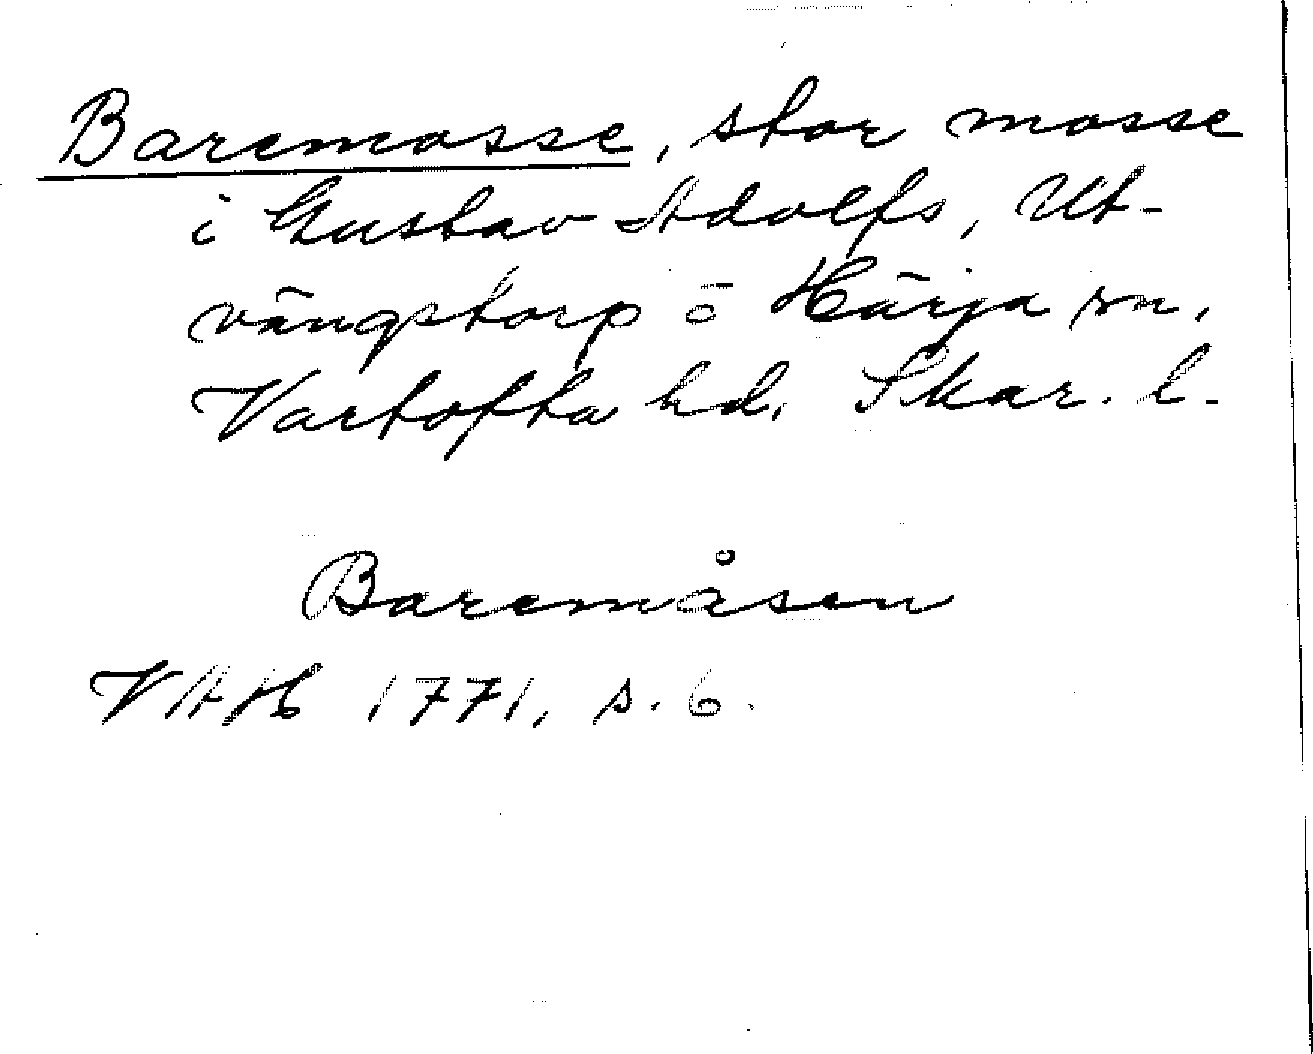 Baremosse, stor mosse
i Gustav Adolfs, Ut-
vängstorp o Härja sn,
Vartofta hd. Skar. l.
Baremåsen
VAH 1771, s. 6.